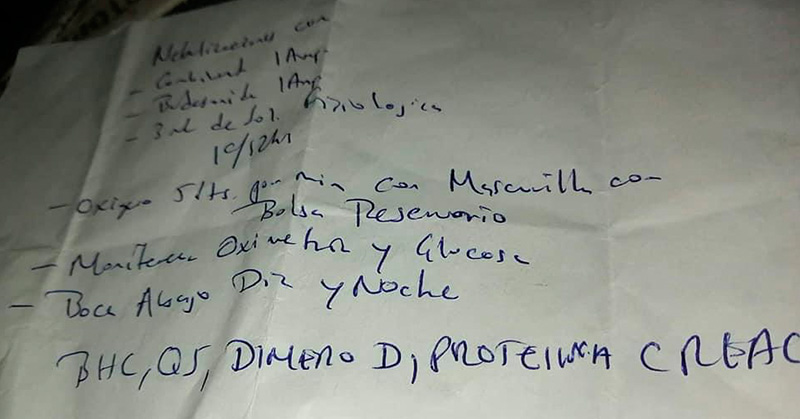 Nebulizaciones con
- Combivent 1 Amp
- Budesonida 1 Amp
- 3 ml de Sol. Fisiologica
1c/12hr
- Oxigeno 5 lts. por min con Mascarilla con
Bolsa Reservorio
- Monitorear Oximetria y Glucosa
- Boca Abajo Dia y Noche
BHC, QS, DIMERO D, PROTEINA CREAC